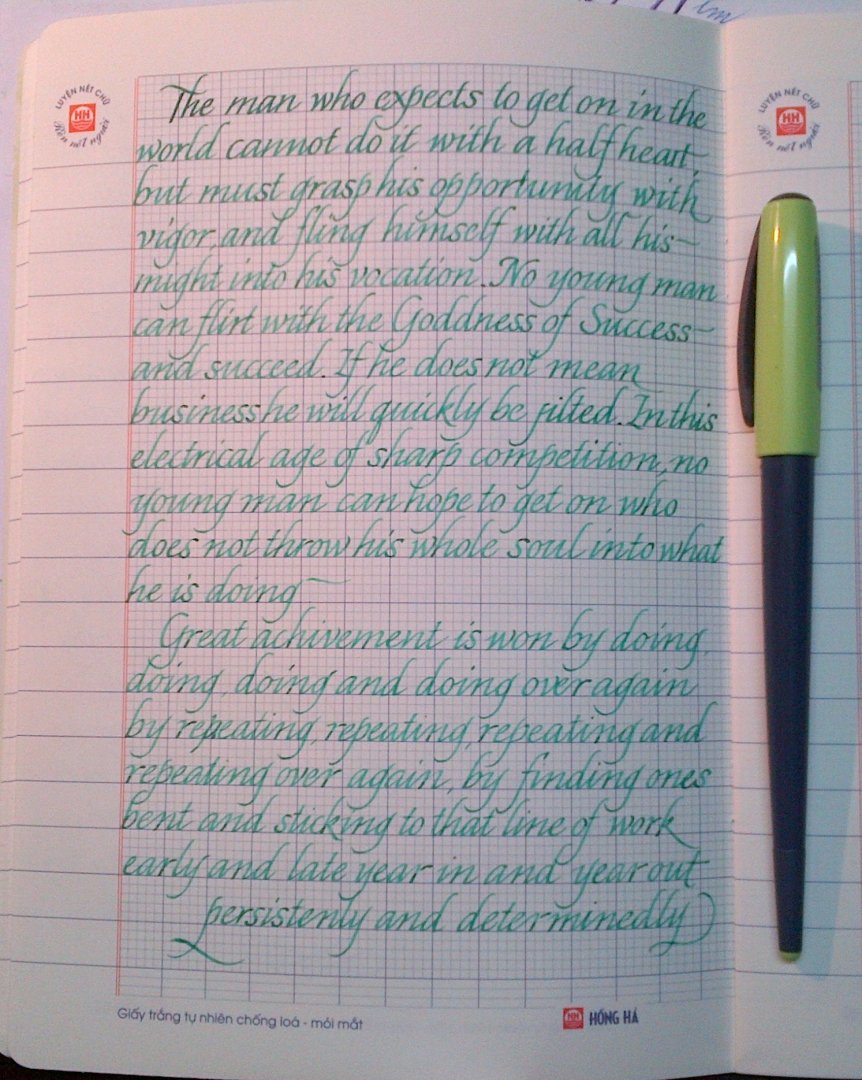 LUYỆN NÉT CHỮ
HH
Rèn nết người
The man who expects to get on in the
world cannot do it with a half heart,
but must grasp his opportunity with
vigor and fling himself with all his
might into his vocation. No young man
can flirt with the Goddness of Success
and succeed. If he does not mean
business he will quickly be jilted. In this
electrical age of sharp competition, no
young man can hope to get on who
does not throw his whole soul into what
he is doing
Great achivement is won by doing,
doing, doing and doing over again
by repeating, repeating, repeating and
repeating over again, by finding ones
bent and sticking to that line of work
early and late year in and year out
persistenly and determinedly
Giấy trắng tự nhiên chống loá - mỏi mắt
HH HỒNG HÀ
LUYỆN NÉT CHỮ
HH
Rèn nết người